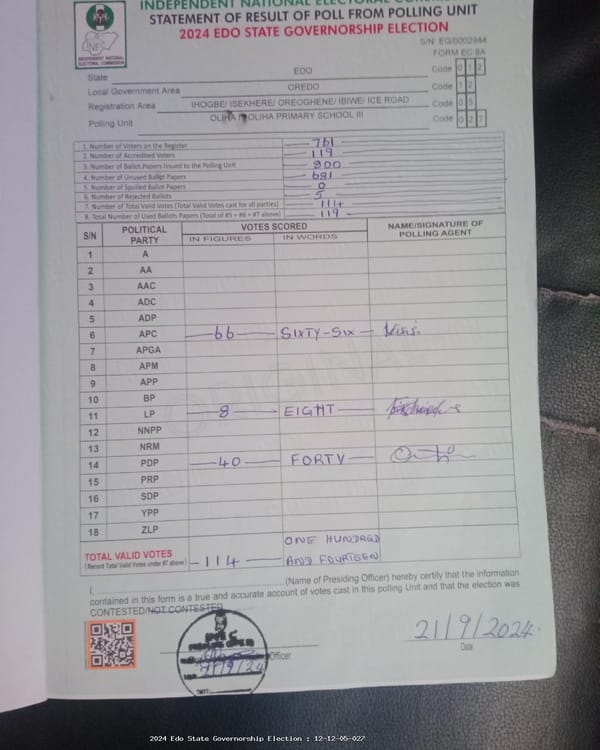 INDEPENDENT NATIONAL ELECTORAL
STATEMENT OF RESULT OF POLL FROM POLLING UNIT
2024 EDO STATE GOVERNORSHIP ELECTION
INEC
INDEPENDENT NATIONAL ELECTORAL COMMISSION
S/N EG/0002944
FORM EC 8A
State EDO Code 0 1 2
Local Government Area OREDO Code 1 2
Registration Area IHOGBE/ ISEKHERE/ OREOGHENE/ IBIWE/ ICE ROAD Code 0 5
Polling Unit OLIHA OLIHA PRIMARY SCHOOL III Code 0 2 7
1. Number of Voters on the Register 761
2. Number of Accredited Voters 119
3. Number of Ballot Papers Issued to the Polling Unit 800
4. Number of Unused Ballot Papers 681
5. Number of Spoiled Ballot Papers 0
6. Number of Rejected Ballots 5
7. Number of Total Valid Votes (Total Valid Votes cast for all parties) 114
8. Total Number of Used Ballots Papers (Total of #5 + #6 + #7 above) 119
S/N POLITICAL PARTY VOTES SCORED NAME/SIGNATURE OF POLLING AGENT
IN FIGURES IN WORDS
1 A
2 AA
3 AAC
4 ADC
5 ADP
6 APC 66 SIXTY-SIX
7 APGA
8 APM
9 APP
10 BP
11 LP 8 EIGHT
12 NNPP
13 NRM
14 PDP 40 FORTY
15 PRP
16 SDP
17 YPP
18 ZLP
TOTAL VALID VOTES 114 ONE HUNDRED AND FOURTEEN
(Record Total Valid Votes under #7 above)
I, (Name of Presiding Officer) hereby certify that the information
contained in this form is a true and accurate account of votes cast in this polling Unit and that the election was
CONTESTED/NOT CONTESTED
21/9/2024
Officer
Date
INEC
21/9/24
DATE:
2024 Edo State Governorship Election : 12-12-05-027